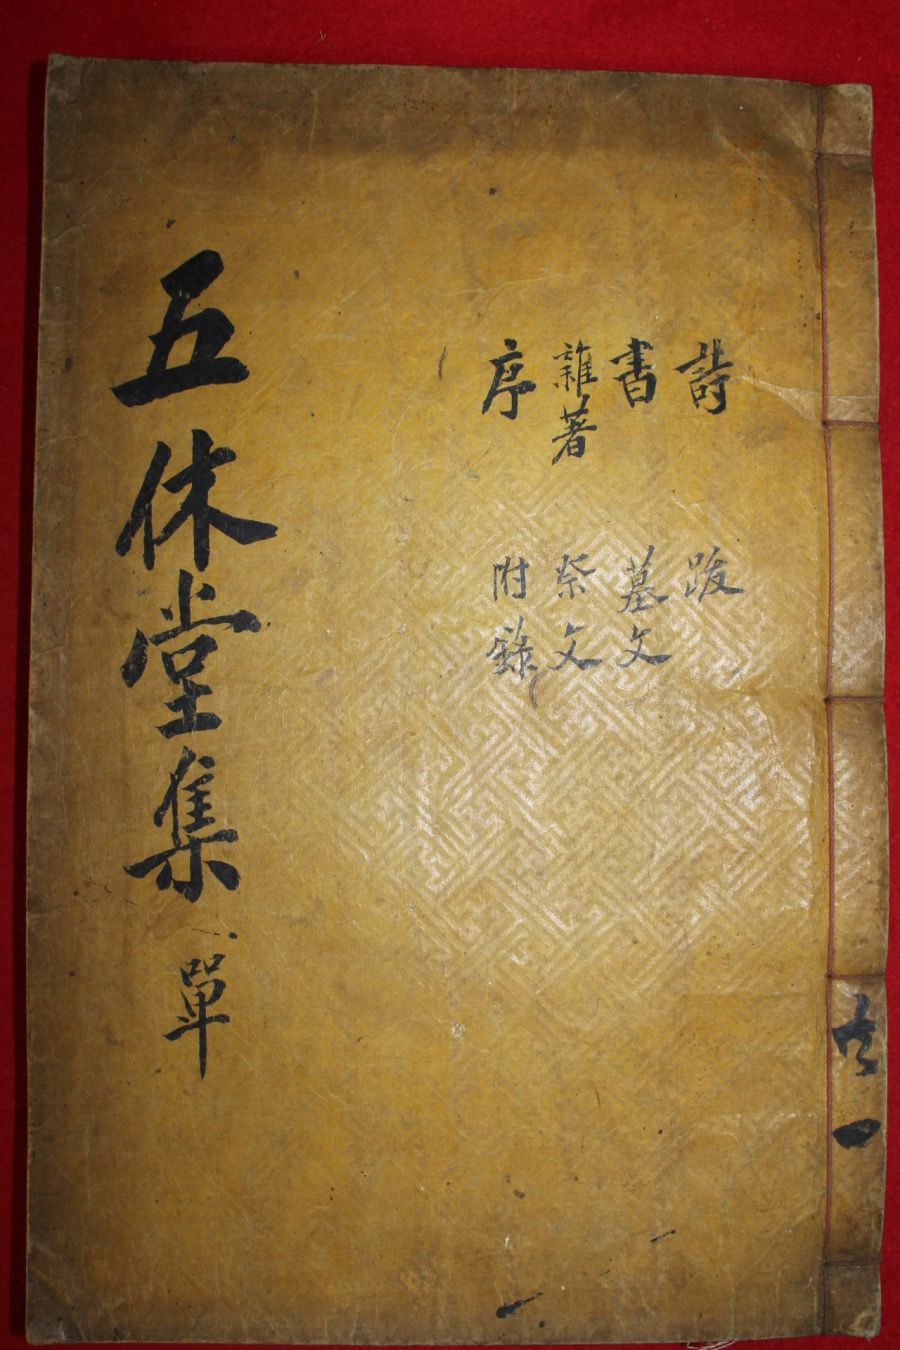 共一
詩
書
雜著
序
跋
墓文
祭文
附錄
五休堂集 單